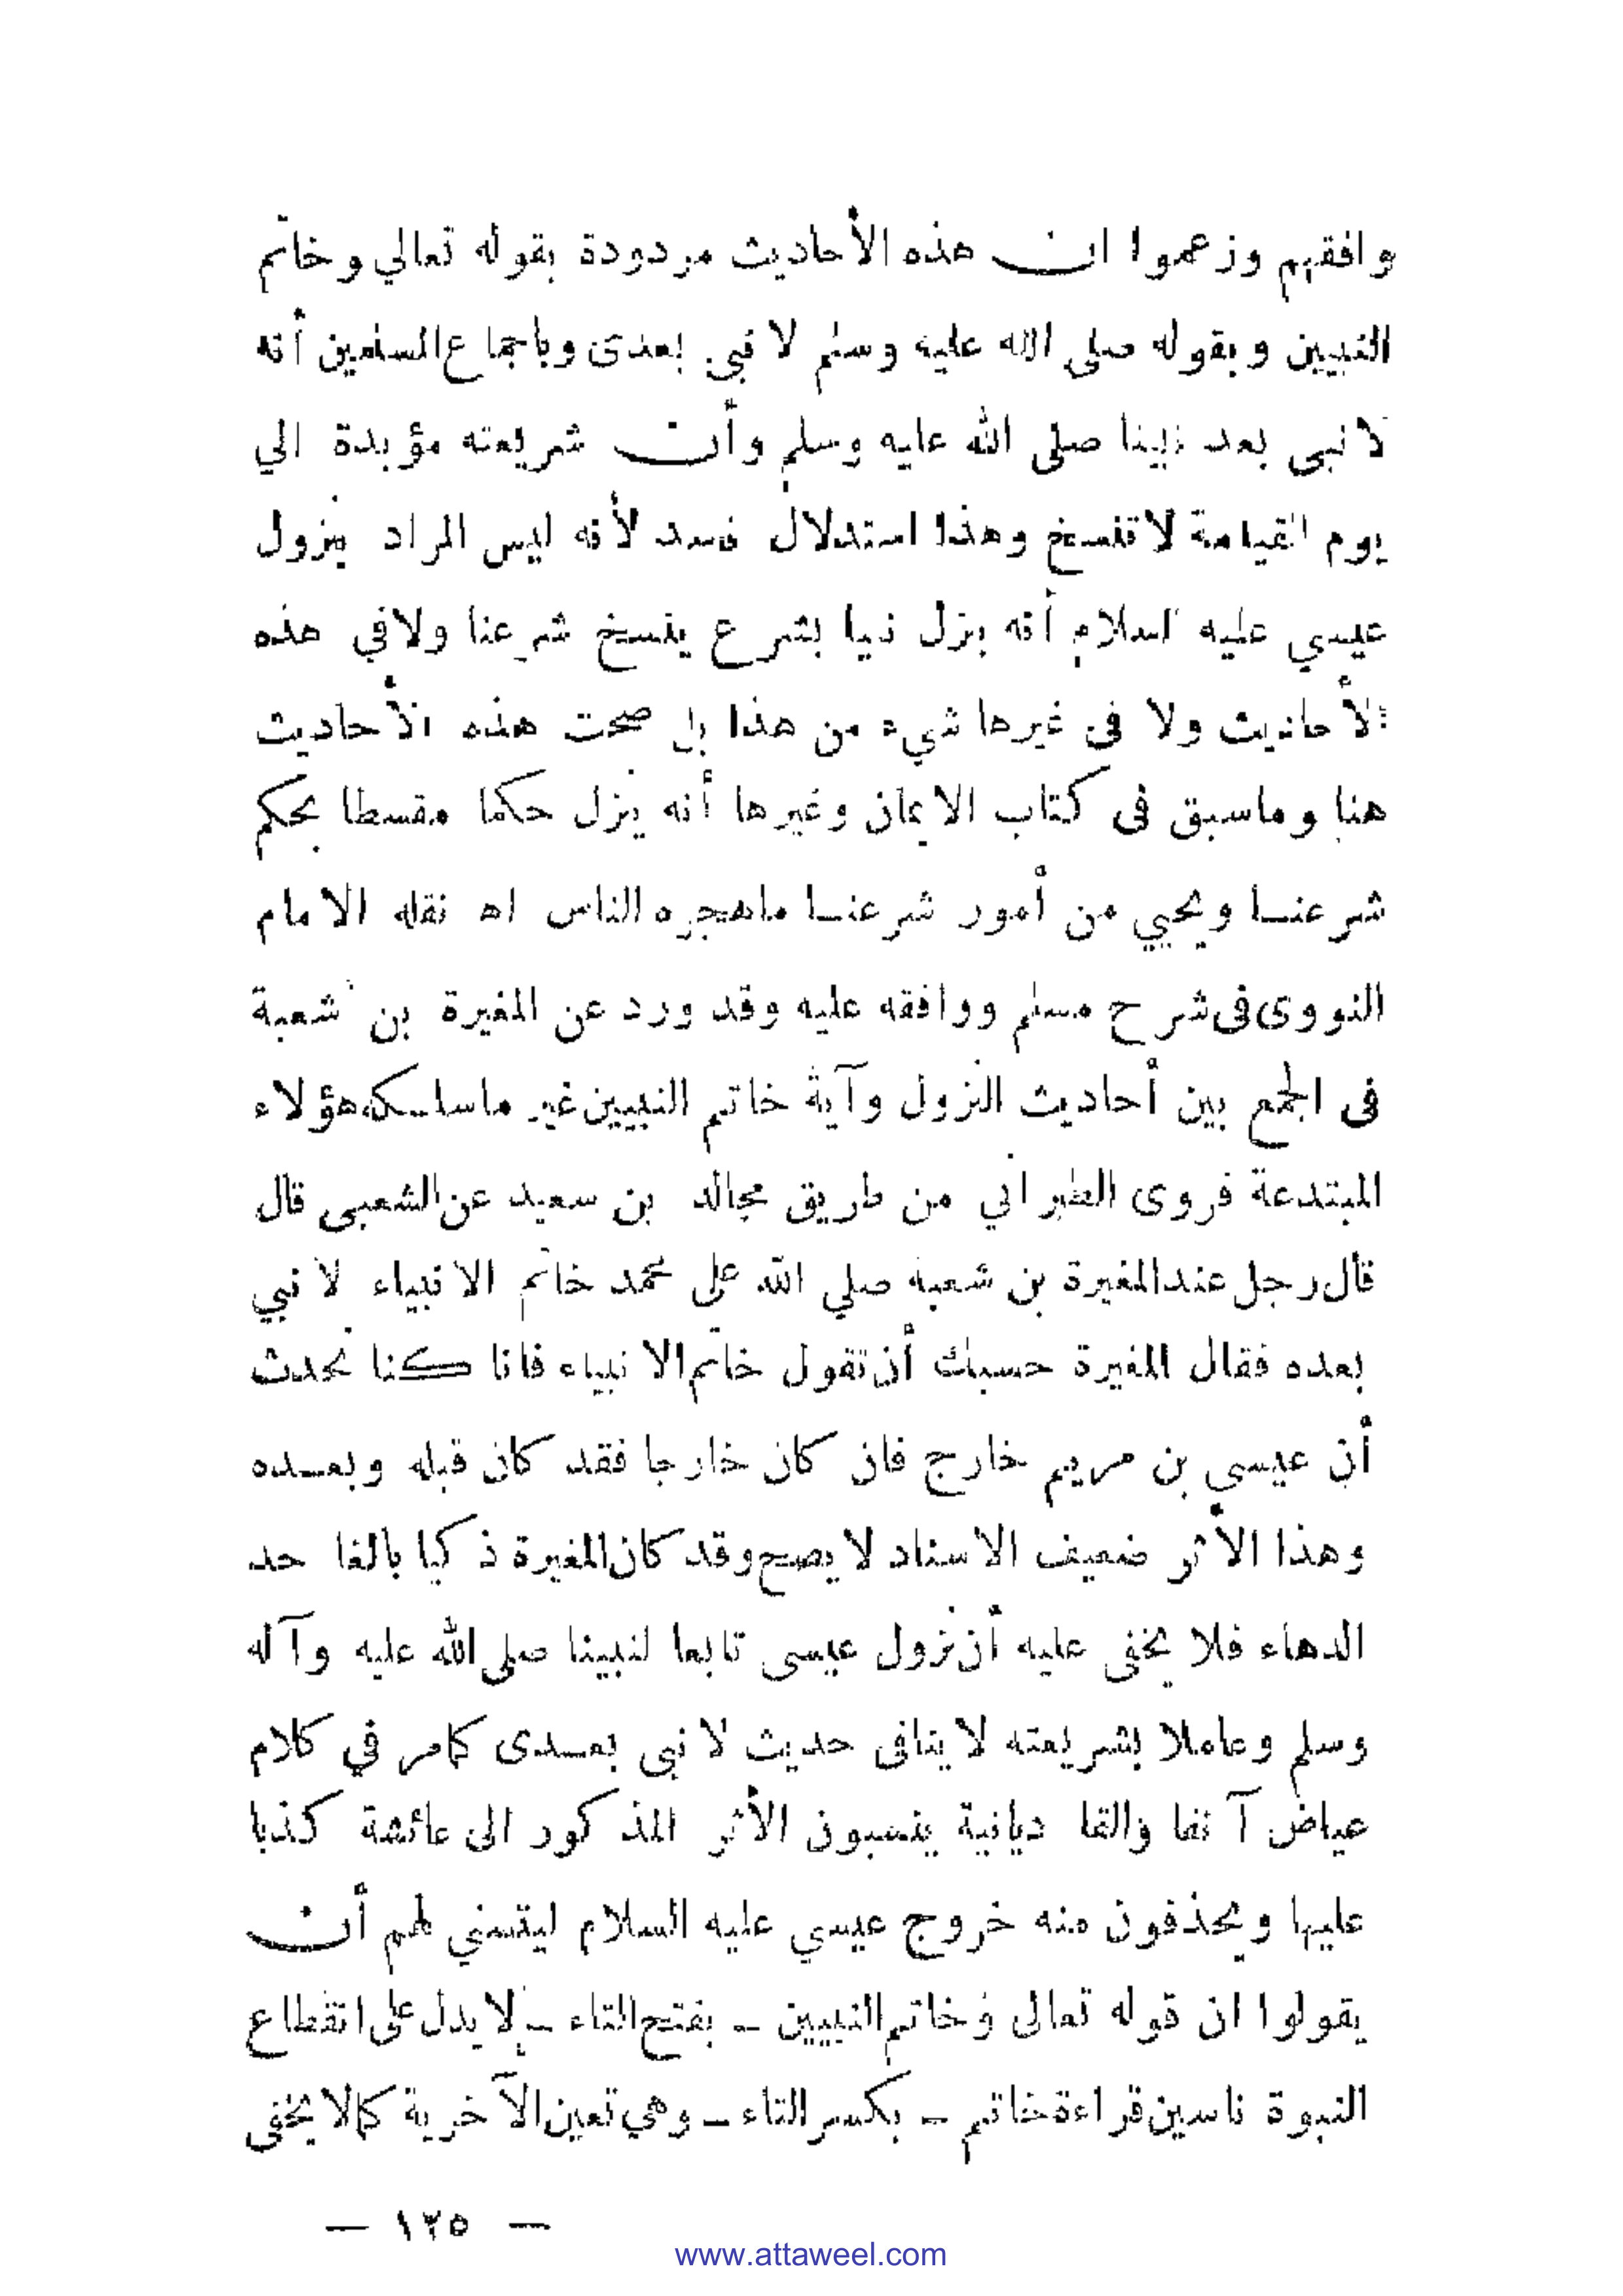 وافقهم وزعموا ان هذه الأحاديث مردودة بقوله تعالي وخاتم
النبيين وبقوله صلى الله عليه وسلم لا نبي بعدى وباجماع المسلمين أنه
لا نبى بعد نبينا صلى الله عليه وسلم وأن شريعته مؤبدة الي
يوم القيامة لا تنسخ وهذا استدلال فاسد لأنه ليس المراد بنزول
عيسي عليه السلام أنه ينزل نبيا بشرع ينسخ شرعنا ولا في هذه
الأحاديث ولا فى غيرها شيء من هذا بل صحت هذه الأحاديث
هنا وماسبق فى كتاب الايمان وغيرها أنه ينزل حكما مقسطا بحكم
شرعنا ويحيي من أمور شرعنا ماهجره الناس اه نقله الامام
النووى فى شرح مسلم ووافقه عليه وقد ورد عن المغيرة بن شعبة
فى الجمع بين أحاديث النزول وآية خاتم النبيين غير ماسلكه هؤلاء
المبتدعة فروى الطبراني من طريق مجالد بن سعيد عن الشعبى قال
قال رجل عند المغيرة بن شعبة صلي الله على محمد خاتم الانبياء لا نبي
بعده فقال المغيرة حسبك أن تقول خاتم الانبياء فانا كنا نحدث
أن عيسي بن مريم خارج فان كان خارجا فقد كان قبله وبعده
وهذا الأثر ضعيف الاسناد لا يصح وقد كان المغيرة ذكيا بالغا حد
الدهاء فلا يخفى عليه أن نزول عيسى تابعا لنبينا صلى الله عليه وآله
وسلم وعاملا بشريعته لا ينافى حديث لا نبى بعدى كمامر في كلام
عياض آنفا والقاديانية ينسبون الأثر المذكور الى عائشة كذبا
عليها ويحذفون منه خروج عيسي عليه السلام ليتسني لهم أن
يقولوا ان قوله تعالى وخاتم النبيين ـ بفتح التاء ـ لا يدل على انقطاع
النبوة ناسين قراءة خاتم ـ بكسر التاء ـ وهي تعين الآخرية كما لا يخفى
— ١٢٥ —
www.attaweel.com